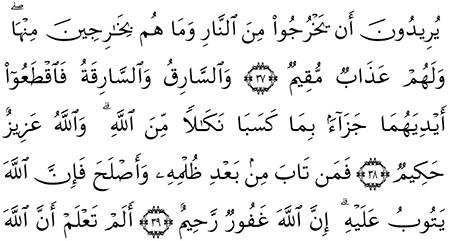 يُرِيدُونَ أَن يَخْرُجُوا۟ مِنَ ٱلنَّارِ وَمَا هُم بِخَـٰرِجِينَ مِنْهَا ۖ
وَلَهُمْ عَذَابٌ مُّقِيمٌ ٣٧ وَٱلسَّارِقُ وَٱلسَّارِقَةُ فَٱقْطَعُوٓا۟
أَيْدِيَهُمَا جَزَآءًۢ بِمَا كَسَبَا نَكَـٰلًا مِّنَ ٱللَّهِ ۗ وَٱللَّهُ عَزِيزٌ
حَكِيمٌ ٣٨ فَمَن تَابَ مِنۢ بَعْدِ ظُلْمِهِۦ وَأَصْلَحَ فَإِنَّ ٱللَّهَ
يَتُوبُ عَلَيْهِ ۗ إِنَّ ٱللَّهَ غَفُورٌ رَّحِيمٌ ٣٩ أَلَمْ تَعْلَمْ أَنَّ ٱللَّهَ